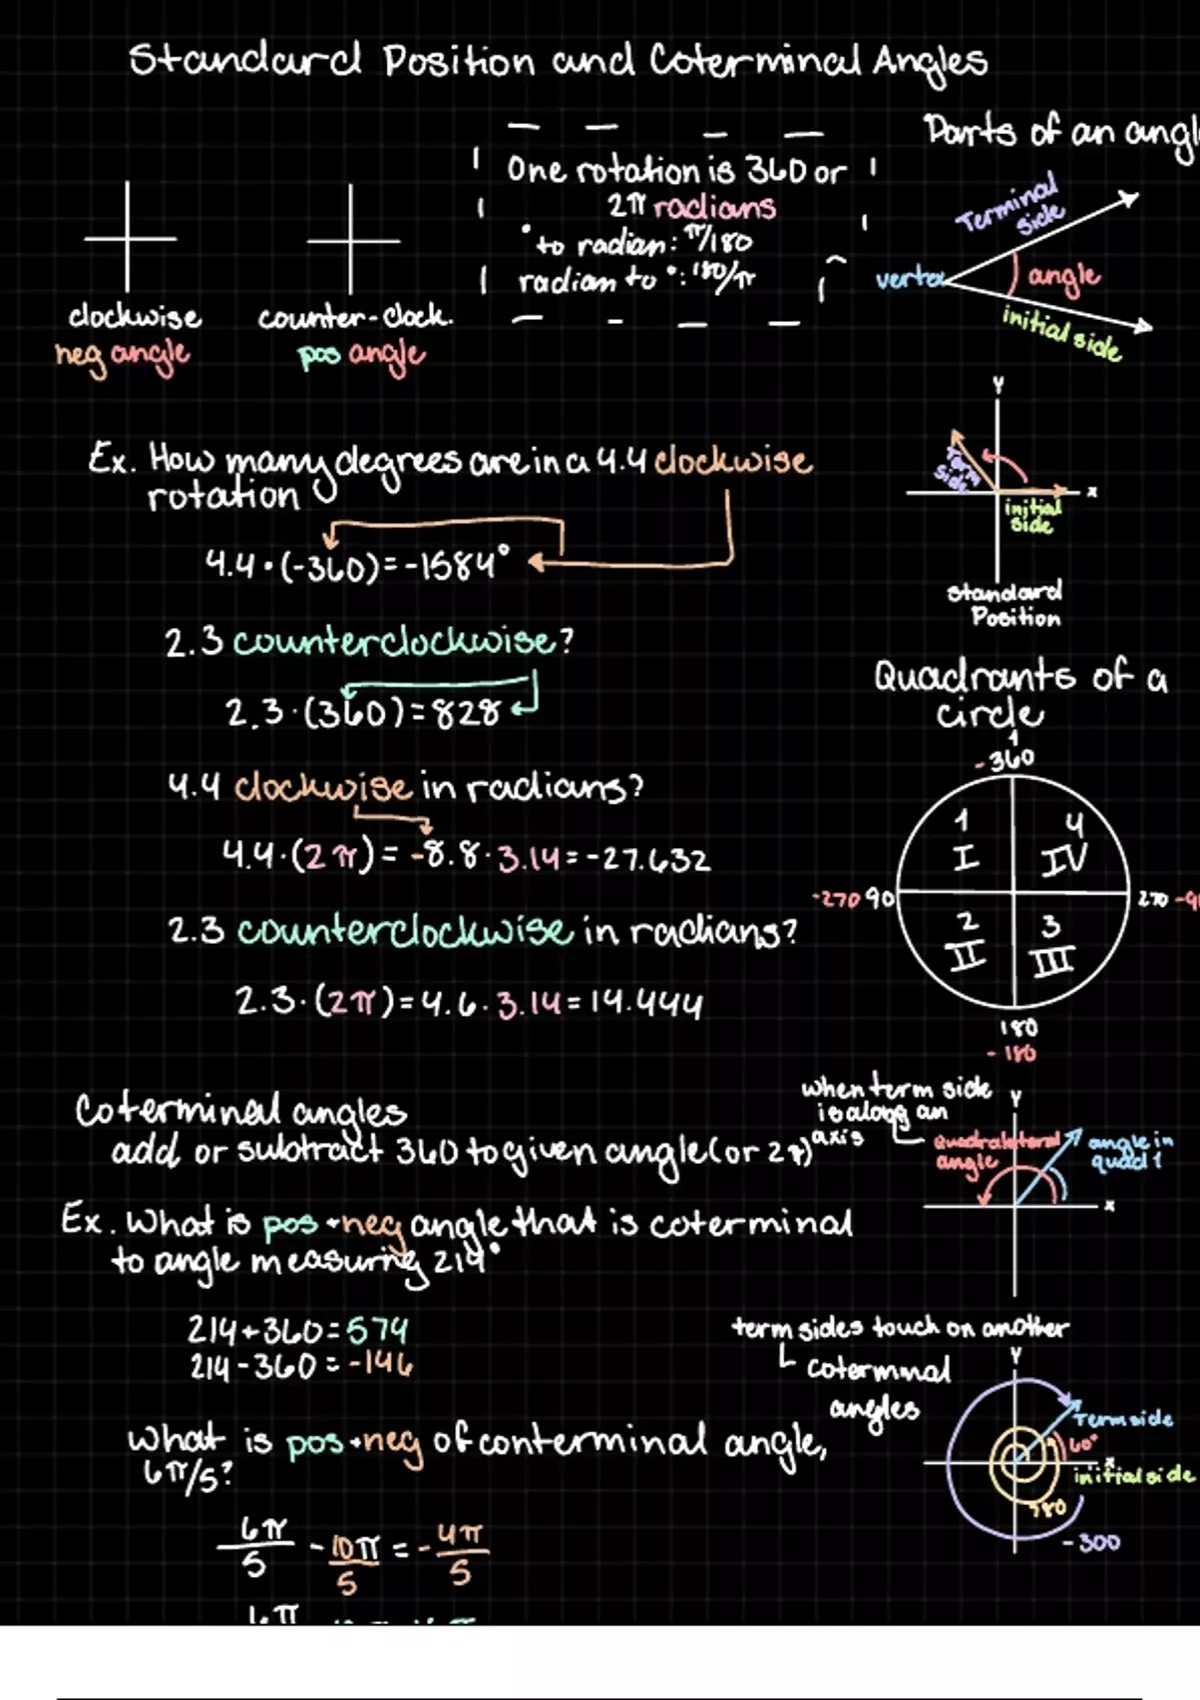 Standard Position and Coterminal Angles
One rotation is 360 or
2π radians
° to radian: π/180
radian to °: 180/π
clockwise
neg angle
counter-clock.
pos angle
Parts of an angl
Terminal
side
vertex
angle
initial side
Y
term
side
x
initial
side
Standard
Position
Ex. How many degrees are in a 4.4 clockwise
rotation
4.4 • (-360) = -1584°
2.3 counterclockwise?
2.3 · (360) = 828
4.4 clockwise in radians?
4.4 · (2π) = -8.8 · 3.14 = -27.632
2.3 counterclockwise in radians?
2.3 · (2π) = 4.6 · 3.14 = 14.444
Quadrants of a
circle
-360
1
I
4
IV
-270 90
270 -9
2
II
3
III
180
-180
Coterminal angles
add or subtract 360 to given angle (or 2π)
when term side
is along an
axis
Quadralateral
angle
Y
angle in
quad 1
x
Ex. What is pos + neg angle that is coterminal
to angle measuring 214°
214 + 360 = 574
214 - 360 = -146
term sides touch on another
coterminal
angles
Y
Term side
60°
x
initial side
780
-300
What is pos + neg of conterminal angle,
6π/5?
6π/5 - 10π/5 = -4π/5
6π